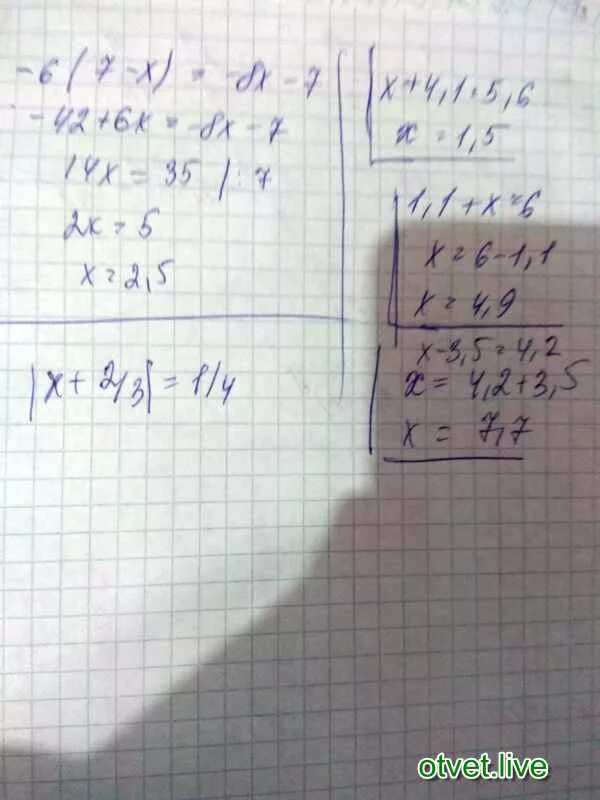 -6(7-x) = -8x-7
-42+6x = -8x-7
14x = 35 |:7
2x = 5
x = 2,5
|x+2/3| = 1/4
x+4,1=5,6
x = 1,5
1,1+x=6
x = 6-1,1
x = 4,9
x-3,5=4,2
x = 4,2+3,5
x = 7,7
otvet.live